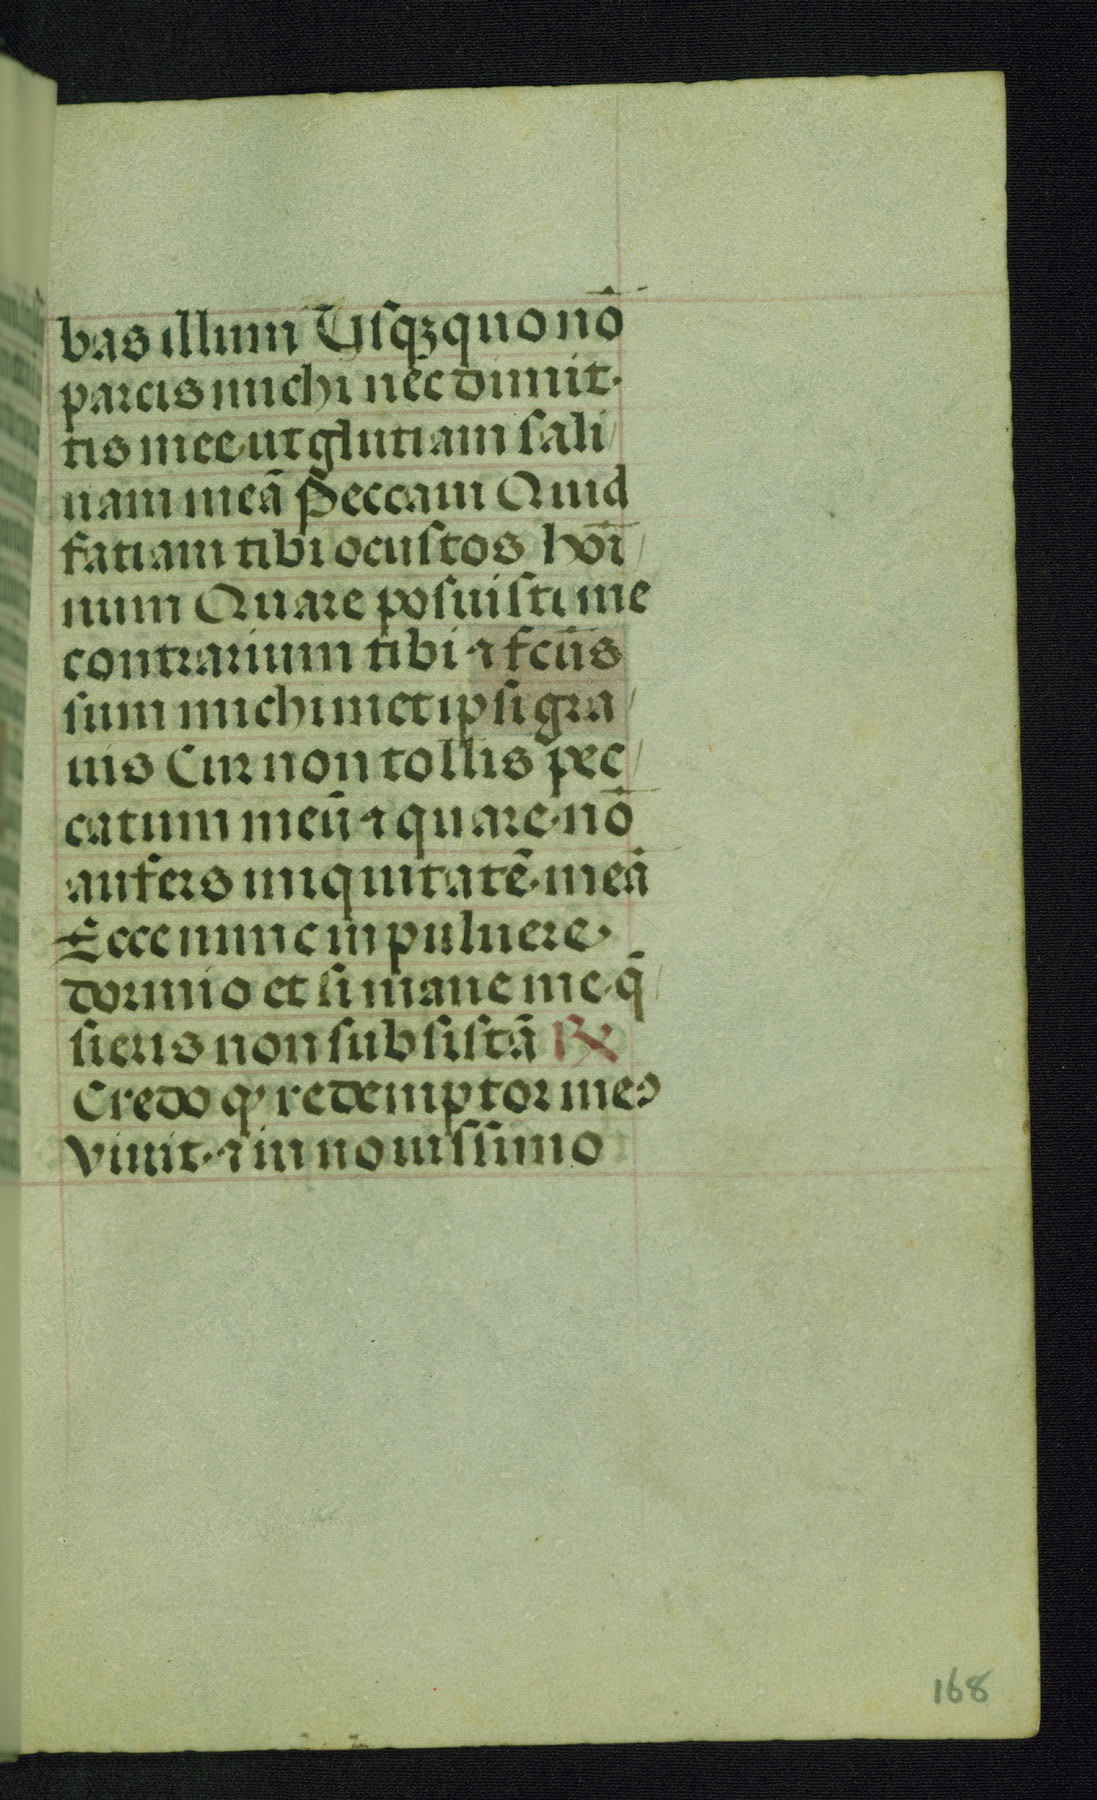 bas illum Usqꝫ quo nō
parcis michi nec dimit·
tis mee ut glutiam sali/
uam meā Peccaui Quid
fatiam tibi o custos hoī/
num Quare posuisti me
contrarium tibi ⁊ fcūs
sum michimet ipsi gra/
uis Cur non tollis pec/
catum meū ⁊ quare nō
aufers iniquitatē meā
Ecce nunc in puluere
dormio et si mane me q̄/
sieris non subsistā ℟
Credo ꝙ redemptor meꝰ
viuit· ⁊ in nouissimo
168